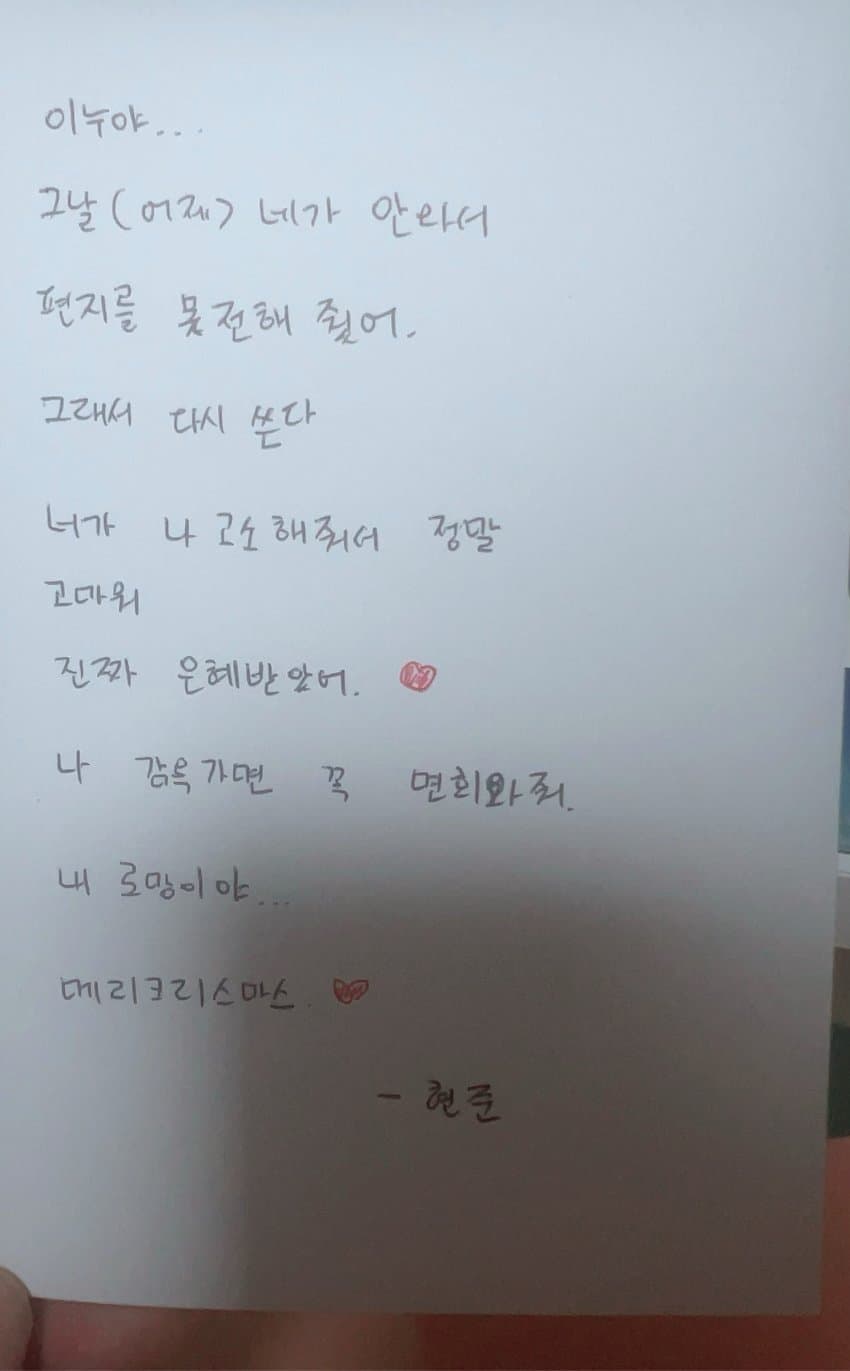 이누야...
그날(어제) 네가 안와서
편지를 못전해 줬어.
그래서 다시 쓴다
너가 나 고소해줘서 정말
고마워
진짜 은혜받았어. ♥
나 감옥가면 꼭 면회와줘.
내 로망이야...
메리크리스마스. ♥
- 현준